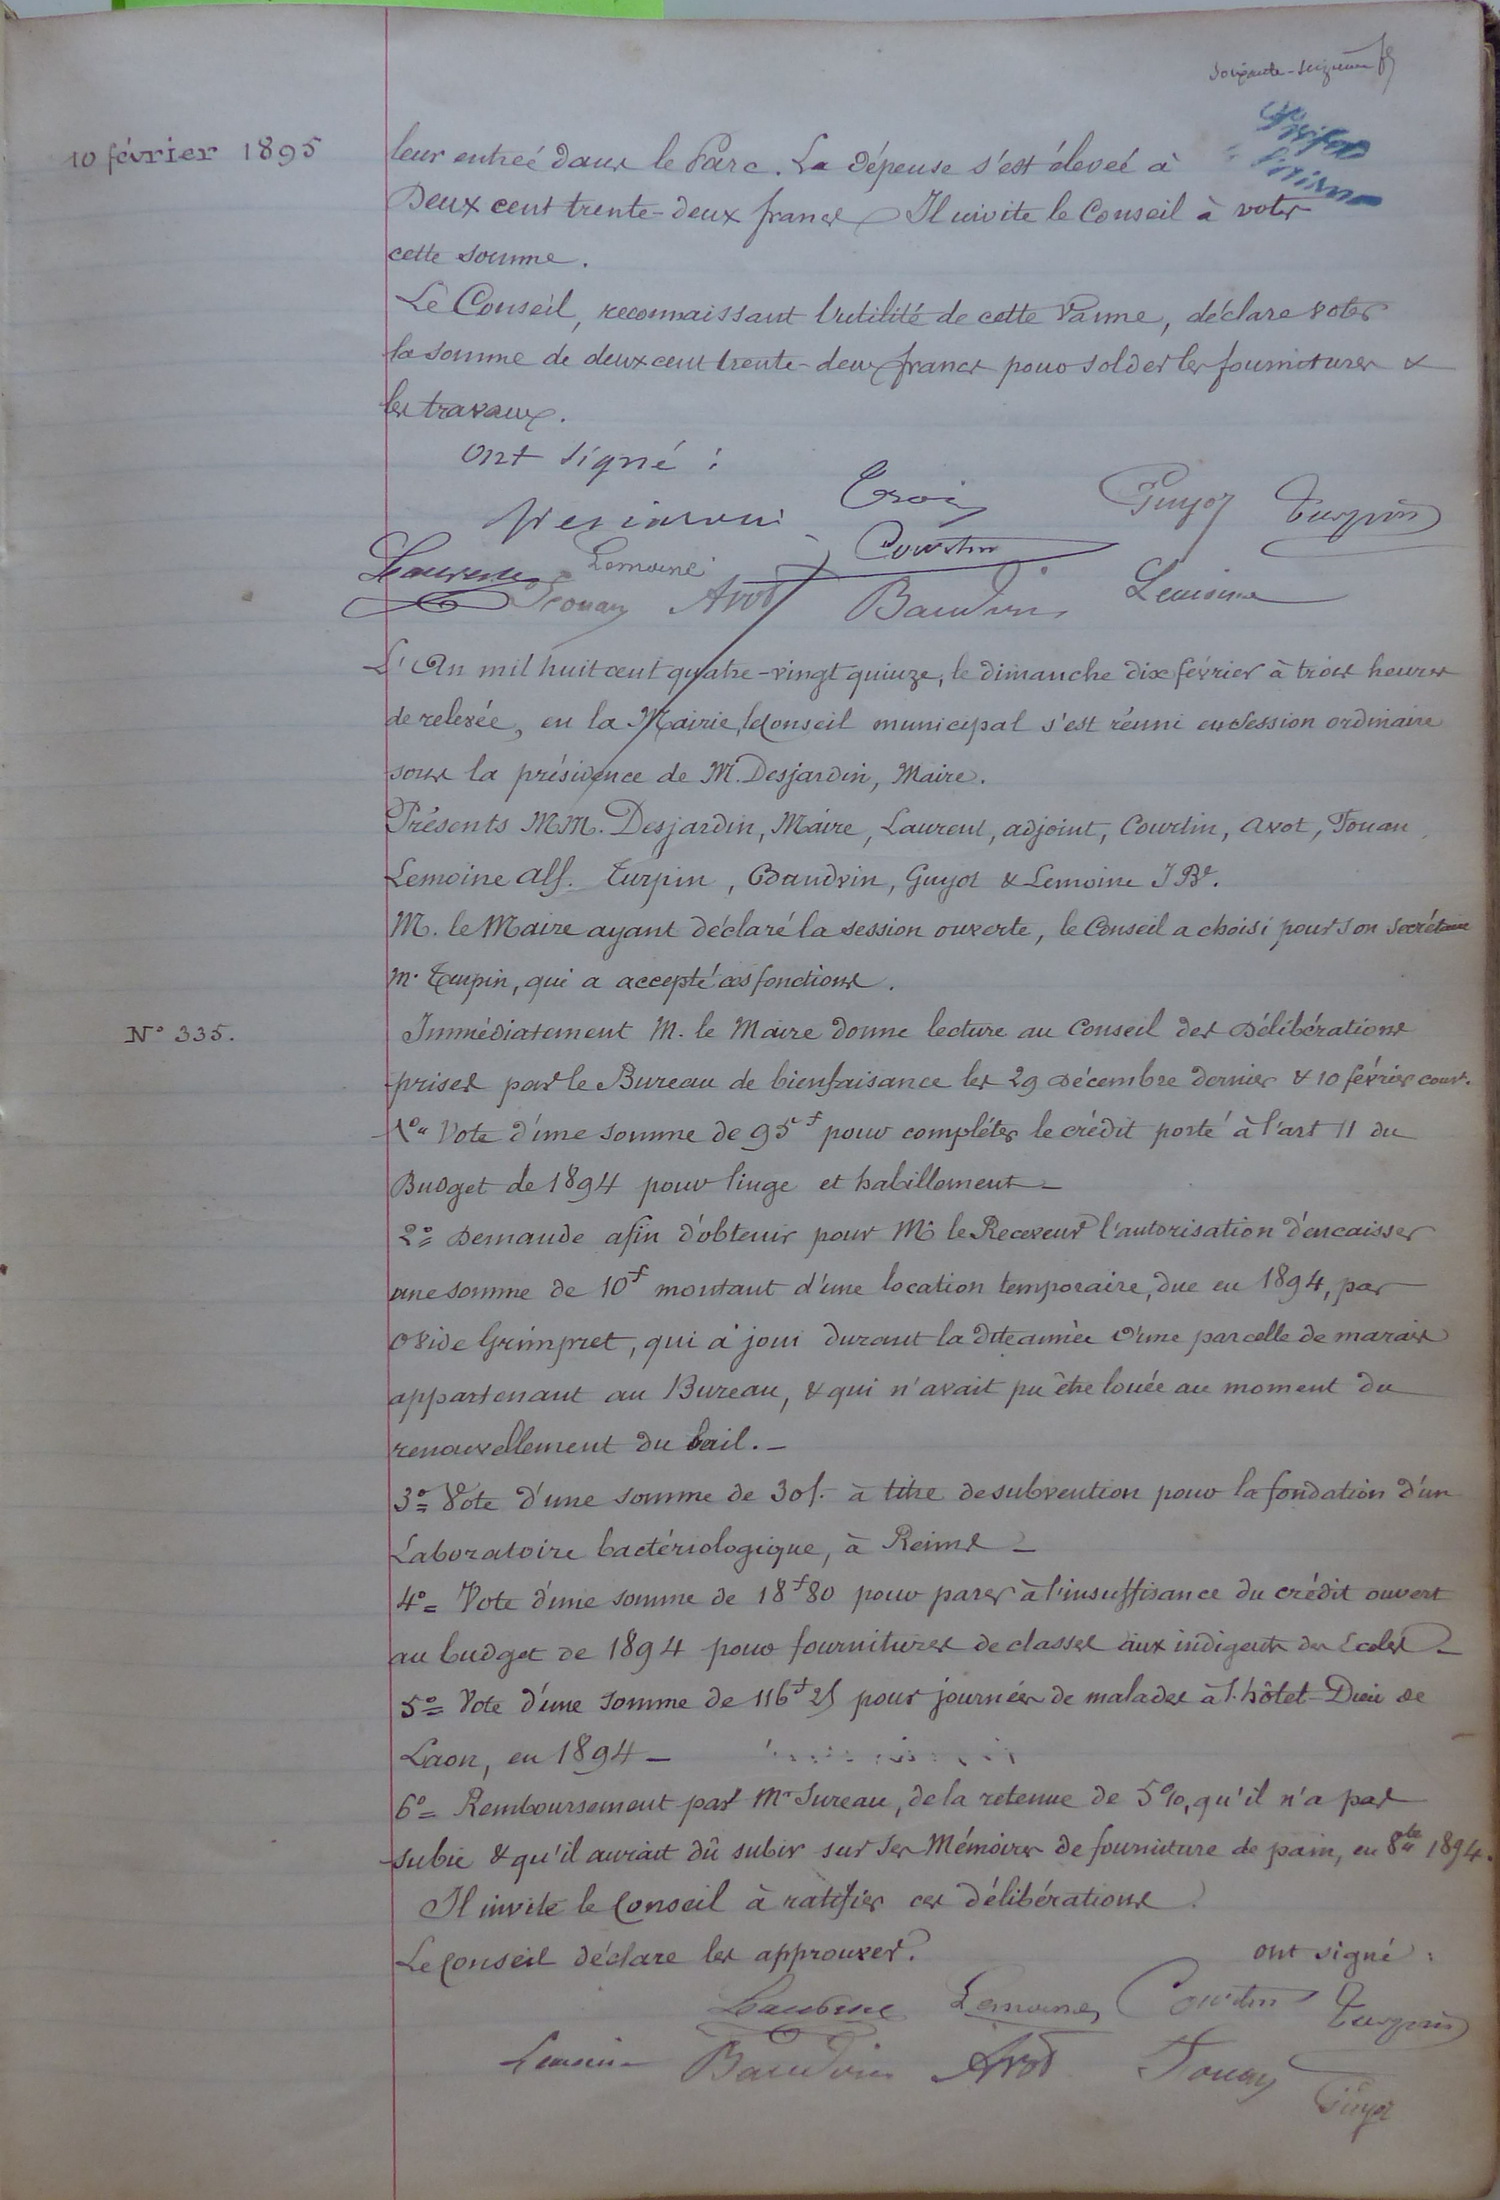 soixante-seizième f
10 février 1895
leur entrée dans le Parc. La dépense s'est élevée à
Deux cent trente-deux francs Il invite le Conseil à voter
cette somme.
Le Conseil, reconnaissant l'utilité de cette vanne, déclare voter
la somme de deux cent trente-deux francs pour solder les fournitures &
les travaux.
ont signé :
Guyot Turpin
Courtin
Laurent Lemoine
Touan Avot Baudvin Lemoine
L'An mil huit cent quatre-vingt quinze, le dimanche dix février à trois heures
de relevée, en la Mairie, le Conseil municipal s'est réuni en session ordinaire
sous la présidence de M. Desjardin, Maire.
Présents MM. Desjardin, Maire, Laurent, adjoint, Courtin, Avot, Touan,
Lemoine Alf. Turpin, Baudvin, Guyot & Lemoine J Bte.
M. le Maire ayant déclaré la session ouverte, le Conseil a choisi pour son secrétaire
M. Turpin, qui a accepté ces fonctions.
N° 335.
Immédiatement M. le Maire donne lecture au Conseil des Délibérations
prises par le Bureau de bienfaisance les 29 Décembre dernier & 10 février cour.t
1° Vote d'une somme de 95f pour compléter le crédit porté à l'art 11 du
Budget de 1894 pour linge et habillement _
2° = Demande afin d'obtenir pour Mr le Receveur l'autorisation d'encaisser
une somme de 10f montant d'une location temporaire, due en 1894, par
Ovide Grimpret, qui a joui durant la dite année d'une parcelle de marais
appartenant au Bureau, & qui n'avait pu être louée au moment du
renouvellement du bail. _
3° = Vote d'une somme de 30f. à titre de subvention pour la fondation d'un
Laboratoire bactériologique, à Reims _
4° = Vote d'une somme de 18f80 pour parer à l'insuffisance du crédit ouvert
au budget de 1894 pour fournitures de classes aux indigents des Ecoles _
5° = Vote d'une somme de 116f25 pour journées de malades à l'hôtel-Dieu de
Laon, en 1894 _
6° = Remboursement par Mr Sureau, de la retenue de 5%, qu'il n'a pas
subie & qu'il aurait dû subir sur ses Mémoires de fourniture de pain, en 8bre 1894.
Il invite le Conseil à ratifier ces délibérations.
Le Conseil déclare les approuver.
ont signé :
Laurent Lemoine Courtin Turpin
Lemoine Baudvin Avot Touan
Guyot